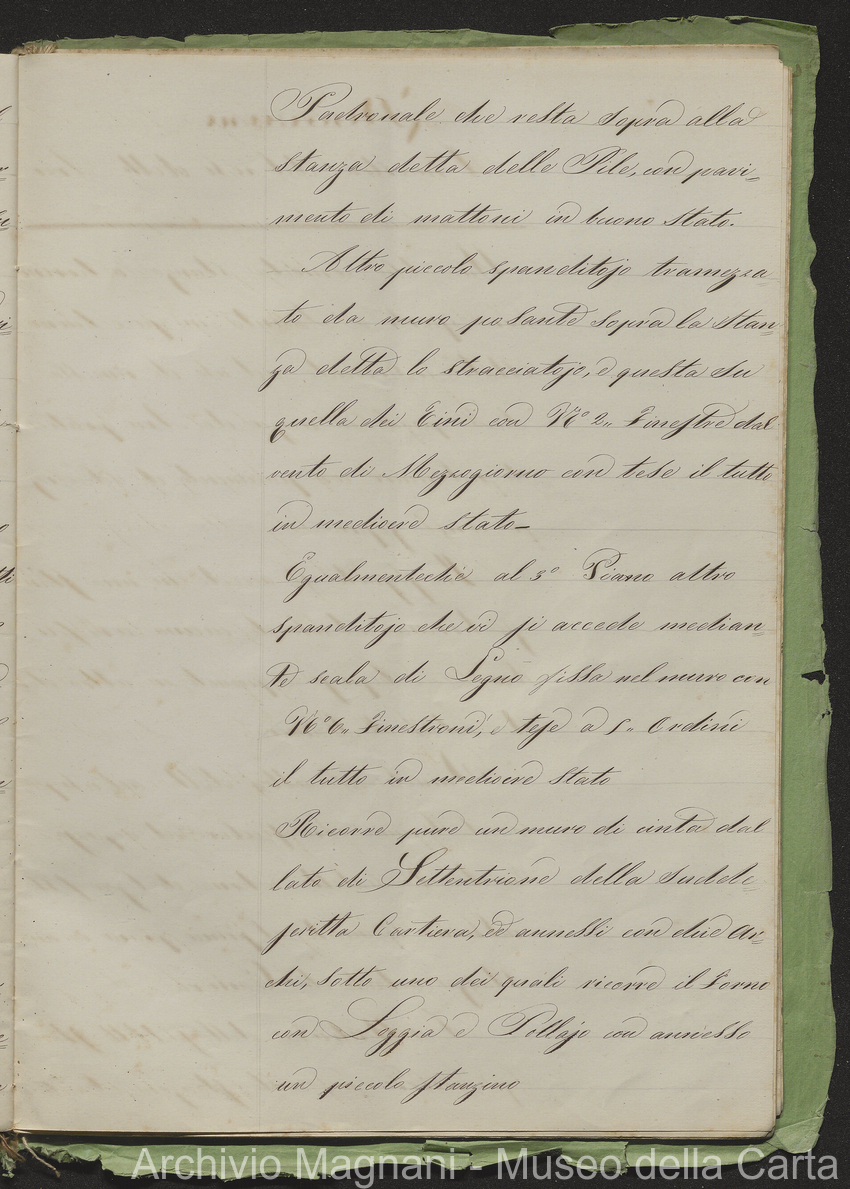 Padronale che resta sopra alla
stanza detta delle Pile, con pavi=
mento di mattoni in buono Stato.
Altro piccolo spanditojo tramezza
to da muro posante sopra la stan=
za detta lo stracciatojo, e questa su
quella dei Tini con No 2,, Finestre dal
vento di Mezzogiorno con tese il tutto
in mediocre stato_
Egualmenteche al 3o Piano altro
spanditojo che vi si accede median=
te scala di Legno fissa nel muro con
No 6,, Finestroni, e tese a 5,, Ordini
il tutto in mediocre Stato
Ricorre pure un muro di cinta dal
lato di Settentrione della sudde=
scritta Cartiera, ed annessi con due Ar=
chi, sotto uno dei quali ricorre il Forno
con Loggia e Pollajo con annesso
un piccolo stanzino
Archivio Magnani - Museo della Carta